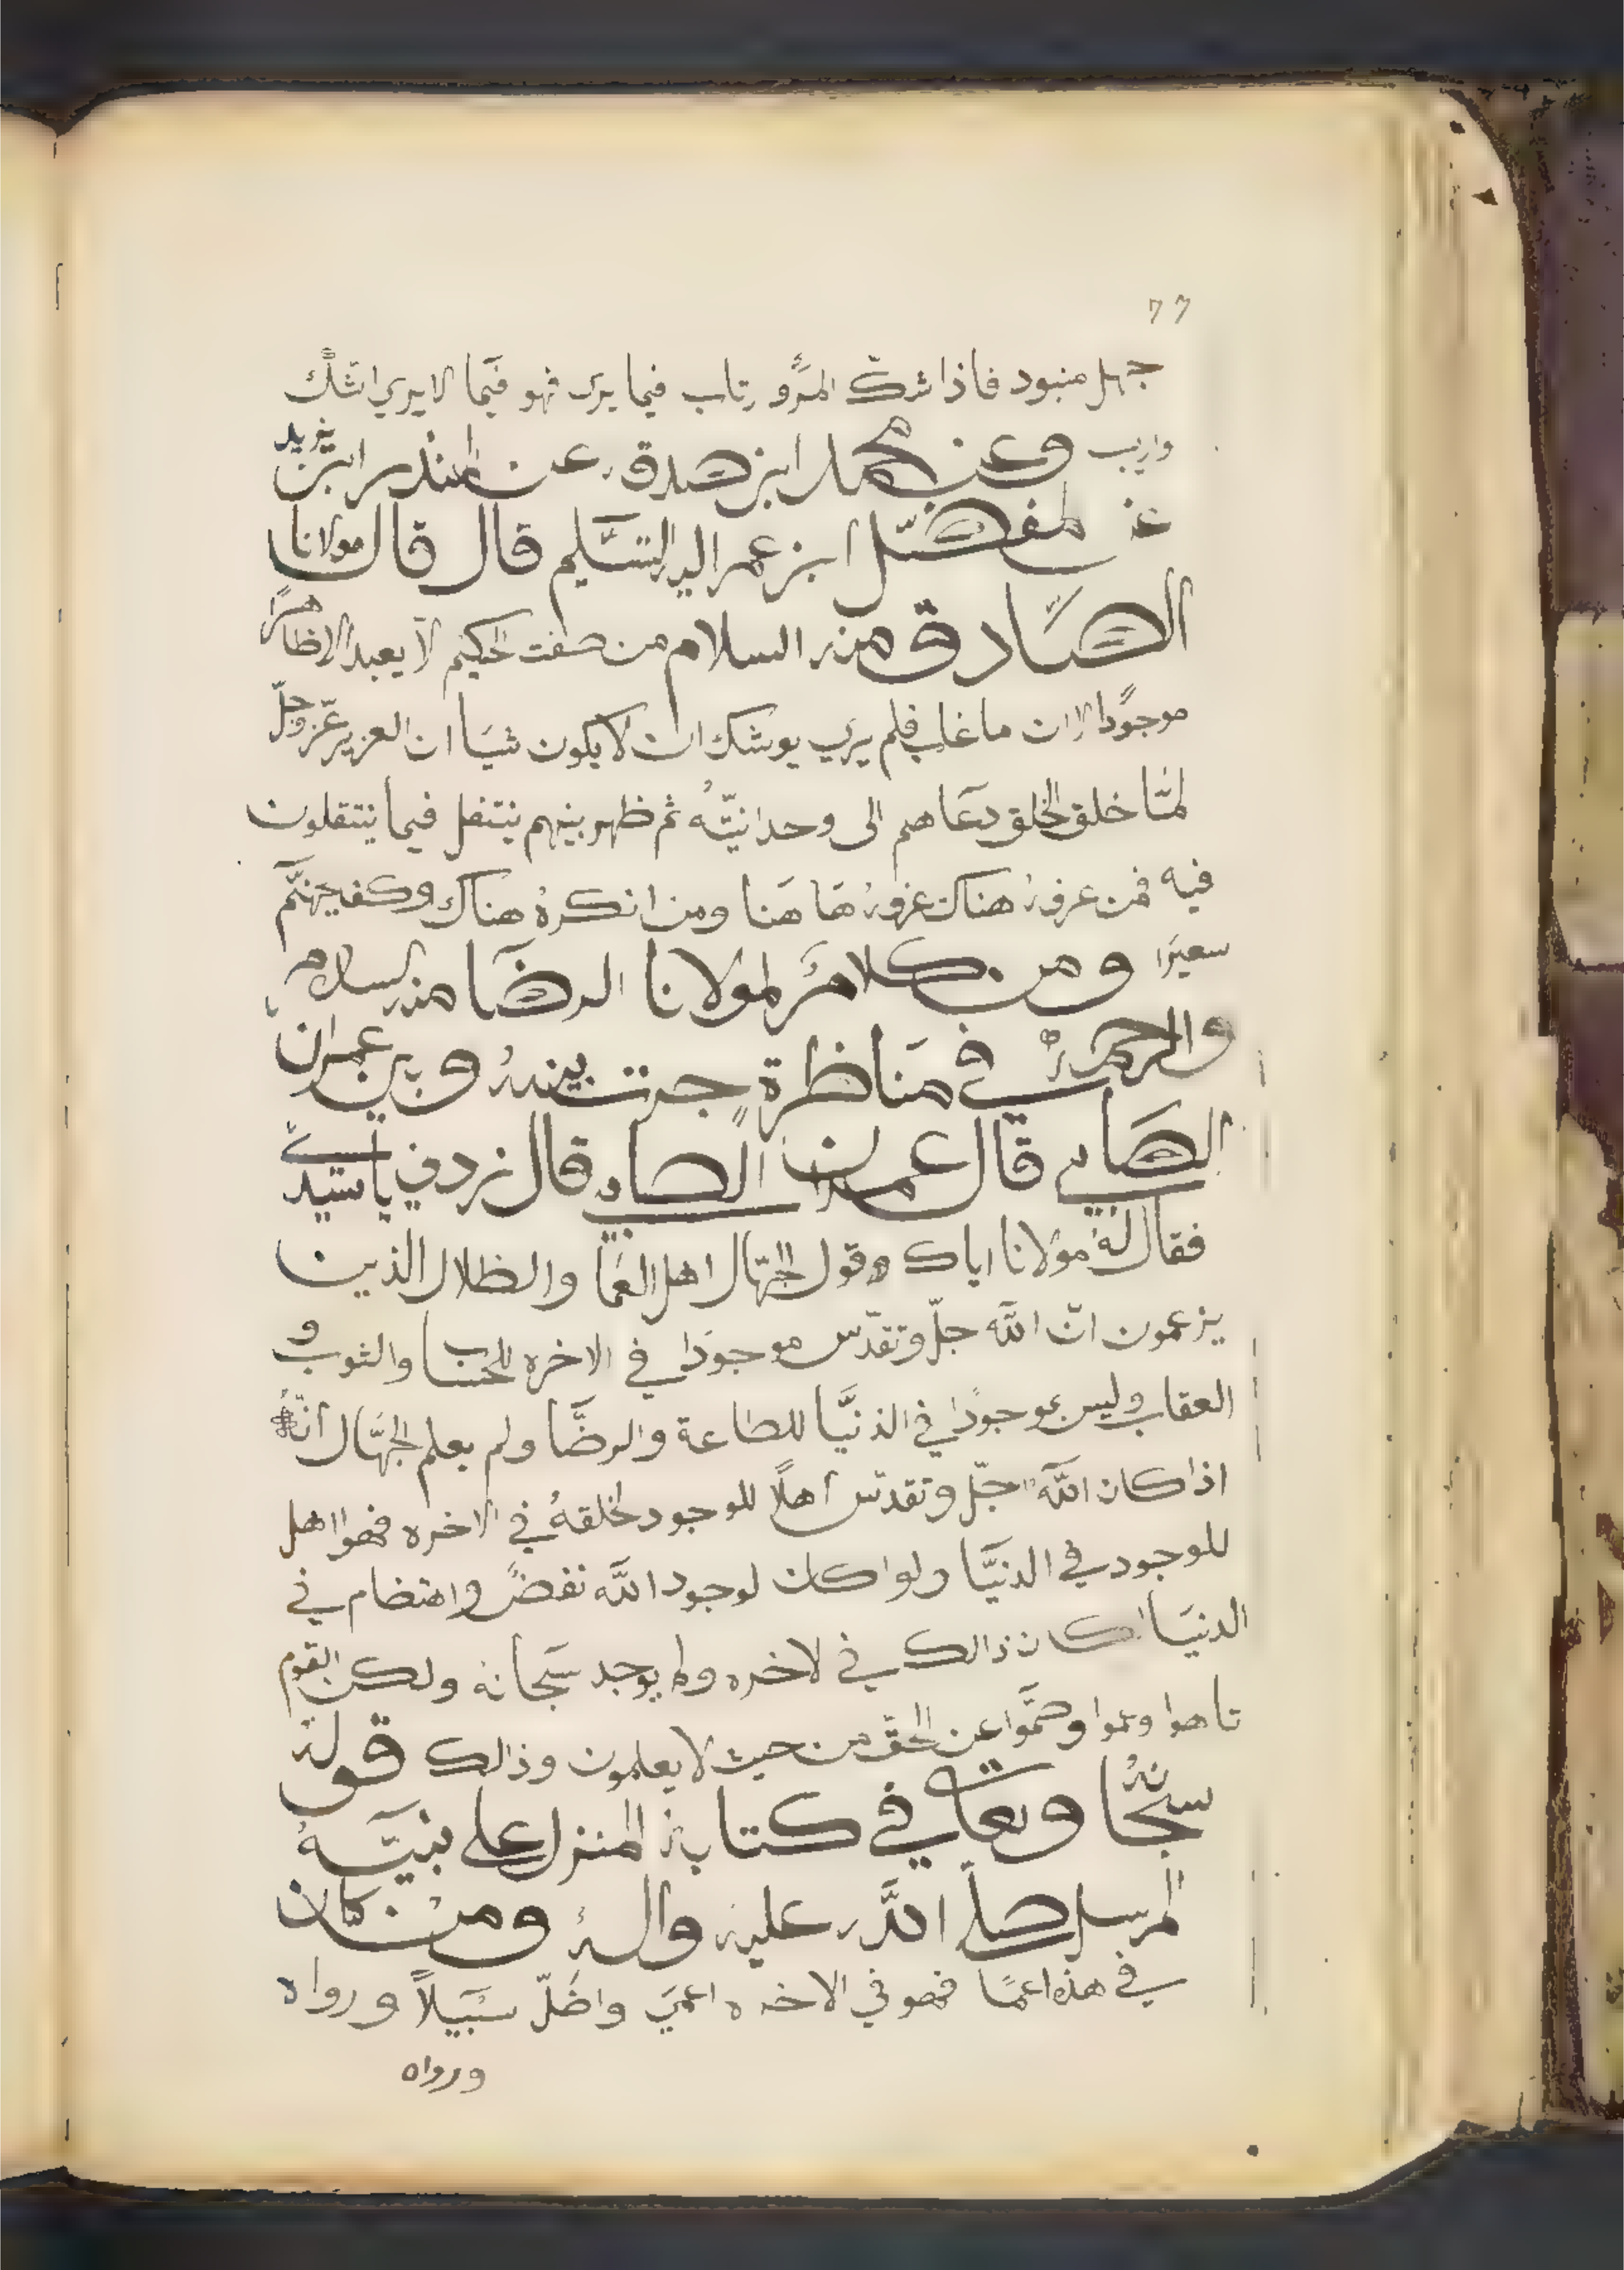 77
جهل منبود فاذا شكّ المرؤ رتاب فيما يرى فهو فيما لا يري اشكّ
واريب وعن محمد ابن صدقه عن المنذر ابن يزيد
عن المفضّل ابن عمر اليه التسليم قال قال مولانا
الصّادق منه السلام من صفت الحكيم لا يعبد الا ظاهراً
موجوداً لان ما غاب فلم يرى يوشك ان لا يكون شياً ان العزيز عزّ وجلّ
لمّا خلق الخلق دعاهم الى وحدانيّته ثم ظهر بينهم يتنقل فيما ينتقلون
فيه فمن عرفه هناك عرفه هاهنا ومن انكره هناك وكفى بجهنّم
سعيرا ومن كلامه لمولانا الرضا منه السلام
والرحمه في مناظرة جرت بينه وبين عمران
الصابي قال عمران الصابي قال زدني يا سيدي
فقال له مولانا اياك وقول الجهّال اهل العما والظلال الذين
يزعمون انّ الله جلّ وتقدّس موجودا في الاخره للحساب والثوب و
العقاب وليس بموجودا في الدنيّا للطاعة والرضّا ولم يعلم الجهّال انّه
اذا كان الله جلّ وتقدّس اهلاً للوجود لخلقه في الاخره فهوا اهل
للوجود في الدنيّا ولوا كان لوجود الله نقضٌ واهتضام في
الدنيا لكان ذالك في لاخره ولم يوجد سبحانه ولكن القوم
تاهوا وعموا وصمّوا عن الحق من حيث لا يعلمون وذالك قوله
سبحانه وتعالى في كتابه المنزل على نبيّه
المرسل صلى الله عليه واله ومن كان
في هذه اعما فهو في الاخره اعمى واضلّ سبيلاً ورواه
ورواه